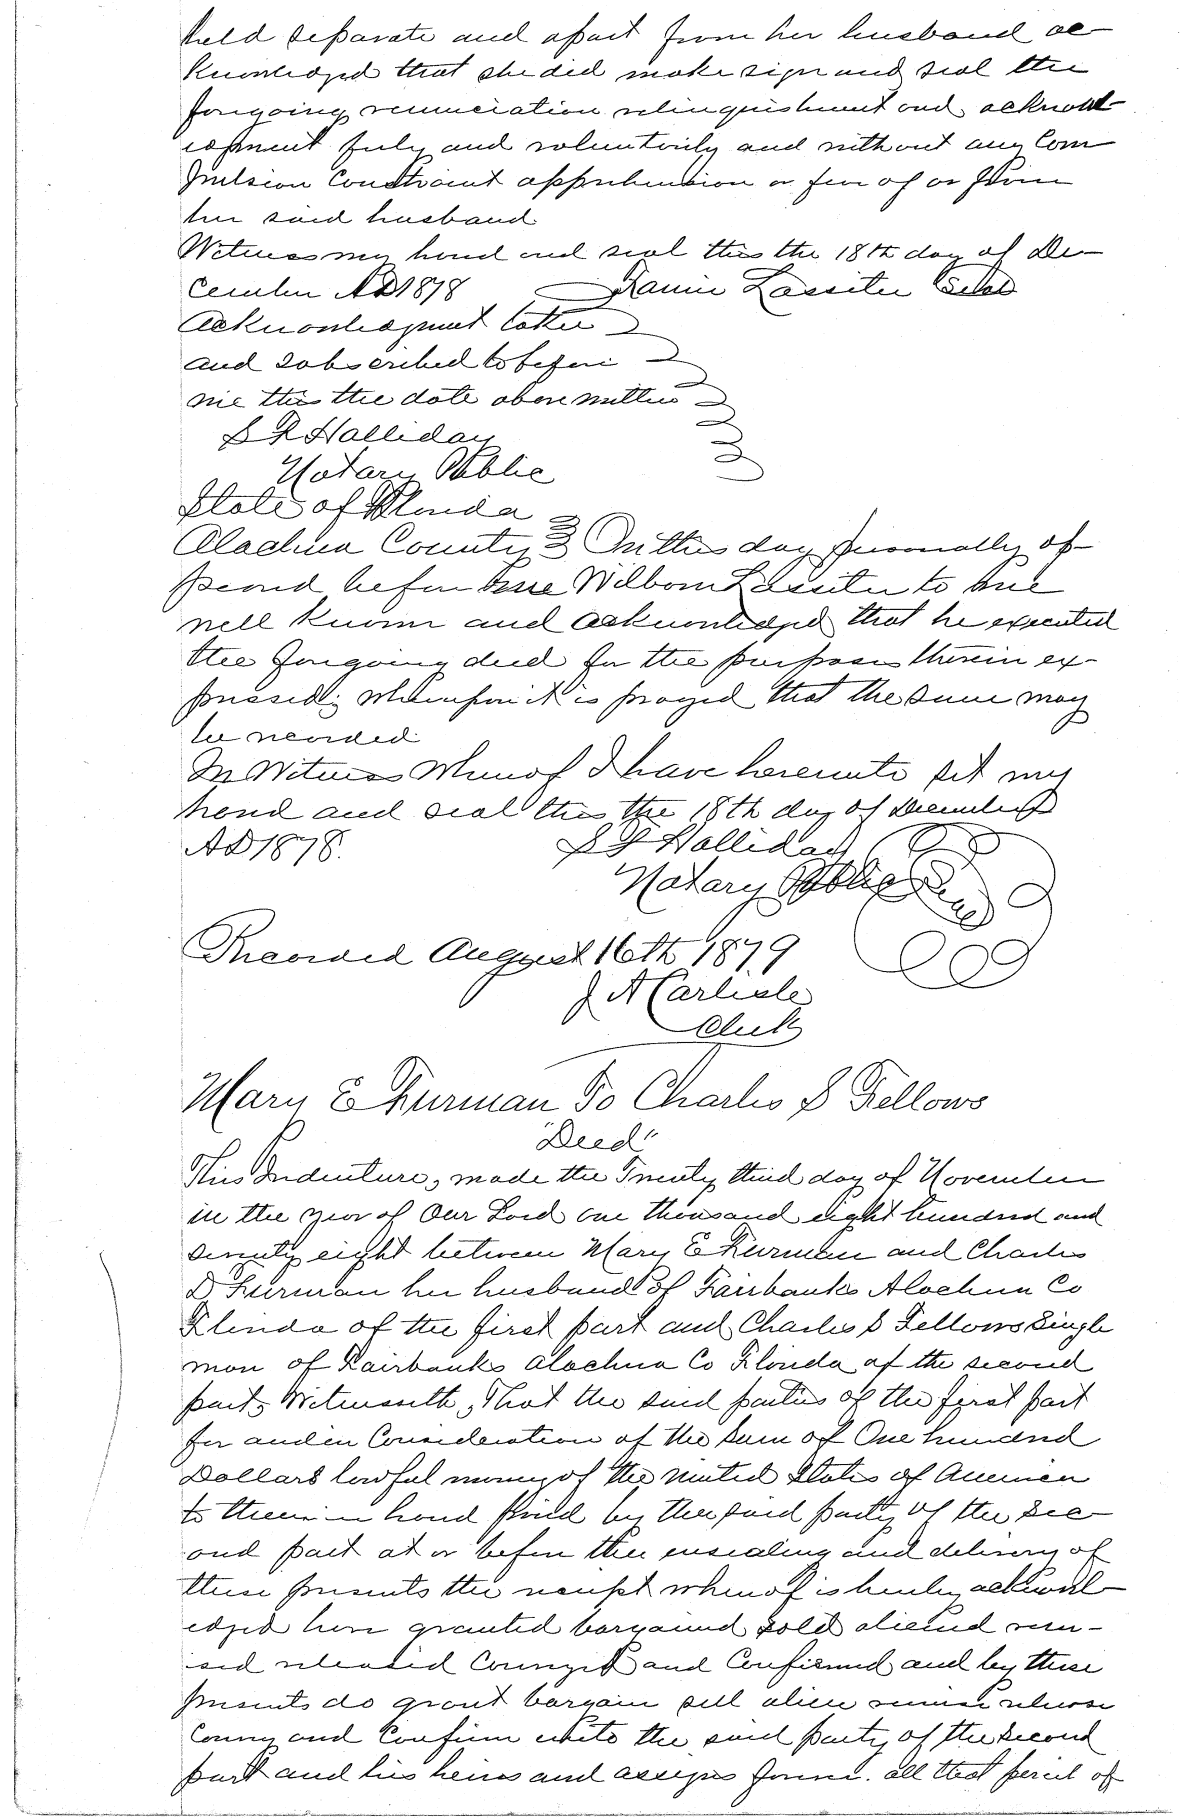 held separate and apart from her husband ac-
knowledged that she did make sign and seal the
foregoing renunciation relinquishment and acknowl-
edgment freely and voluntarily and without any Com
pulsion Constraint apprehension or fear of or from
her said husband.
Witness my hand and seal this the 18th day of De-
cember AD 1878 Fannie Lassiter Seal
Acknowledgment taken
and subscribed to before
me this the date above written
S F Halliday
Notary Public
State of Florida
Alachua County On this day personally ap-
peared before me Wilborn Lassiter to me
well known and acknowledged that he executed
the foregoing deed for the purposes therein ex-
pressed; whereupon it is prayed that the same may
be recorded.
In Witness Whereof I have hereunto set my
hand and seal this the 18th day of December
AD 1878. S F Halliday
Notary Public Seal
Recorded August 16th 1879
J A Carlisle
Clerk
Mary E Furman To Charles S Fellows
"Deed"
This Indenture, made the Twenty third day of November
in the year of Our Lord one thousand eight hundred and
seventy eight between Mary E Furman and Charles
D Furman her husband of Fairbanks Alachua Co
Florida of the first part and Charles S Fellows Single
man of Fairbanks Alachua Co Florida of the second
part, Witnesseth, That the said parties of the first part
for and in Consideration of the Sum of One hundred
Dollars lawful money of the United States of America
to them in hand paid by the said party of the sec-
ond part at or before the ensealing and delivery of
these presents the receipt whereof is hereby acknowl-
edged have granted bargained sold aliened remi-
sed released Conveyed and Confirmed and by these
presents do grant bargain sell alien remise release
Convey and Confirm unto the said party of the second
part and his heirs and assigns forever. all that parcel of